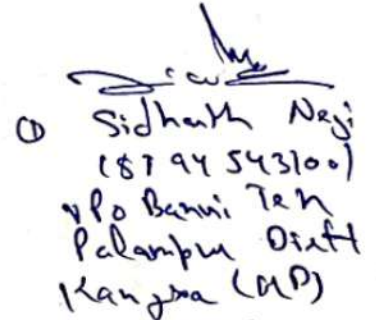 ① Sidhath Negi
(8794543100)
VPO Banuri Teh
Palampur Distt
Kangra (HP)